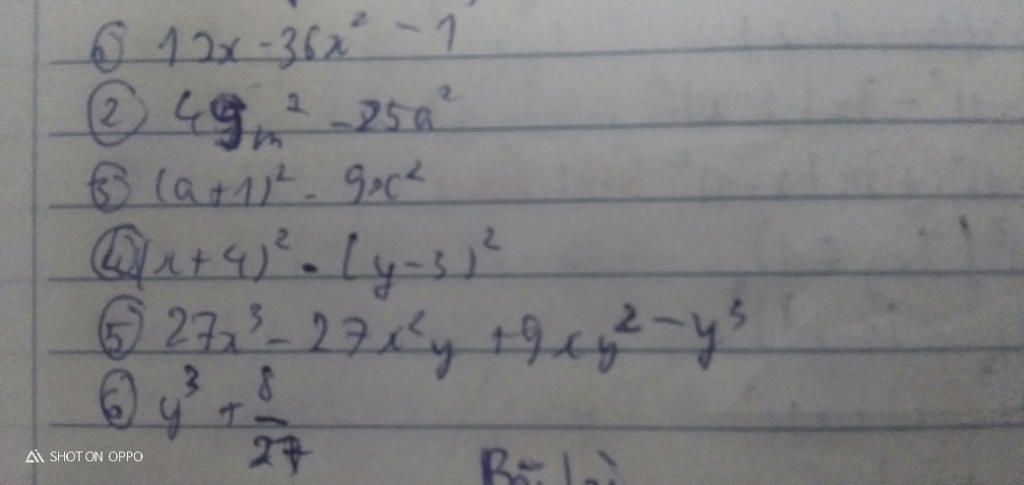 ① 12x - 36x² - 1
② 49m² - 25a²
③ (a+1)² - 9x²
④ (x+4)² - (y-3)²
⑤ 27x³ - 27x²y + 9xy² - y³
⑥ y³ + 8/27
SHOT ON OPPO